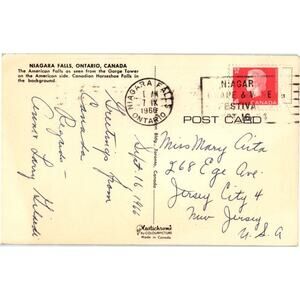 NIAGARA FALLS, ONTARIO, CANADA
The American Falls as seen from the Gorge Tower
on the American side. Canadian Horseshoe Falls in
the background.
NIAGARA FALLS
AM
IX
1966
ONTARIO
NIAGAR
GRAPE & WINE
FESTIVA
CANADA
POST CARD
Sept. 16, 1966
Greetings from
Canada
Regards—
Larry
Miss Mary
268 Ege Ave.
Jersey City 4
New Jersey
U.S.A
Plastichrome
by COLOURPICTURE
Made in Canada